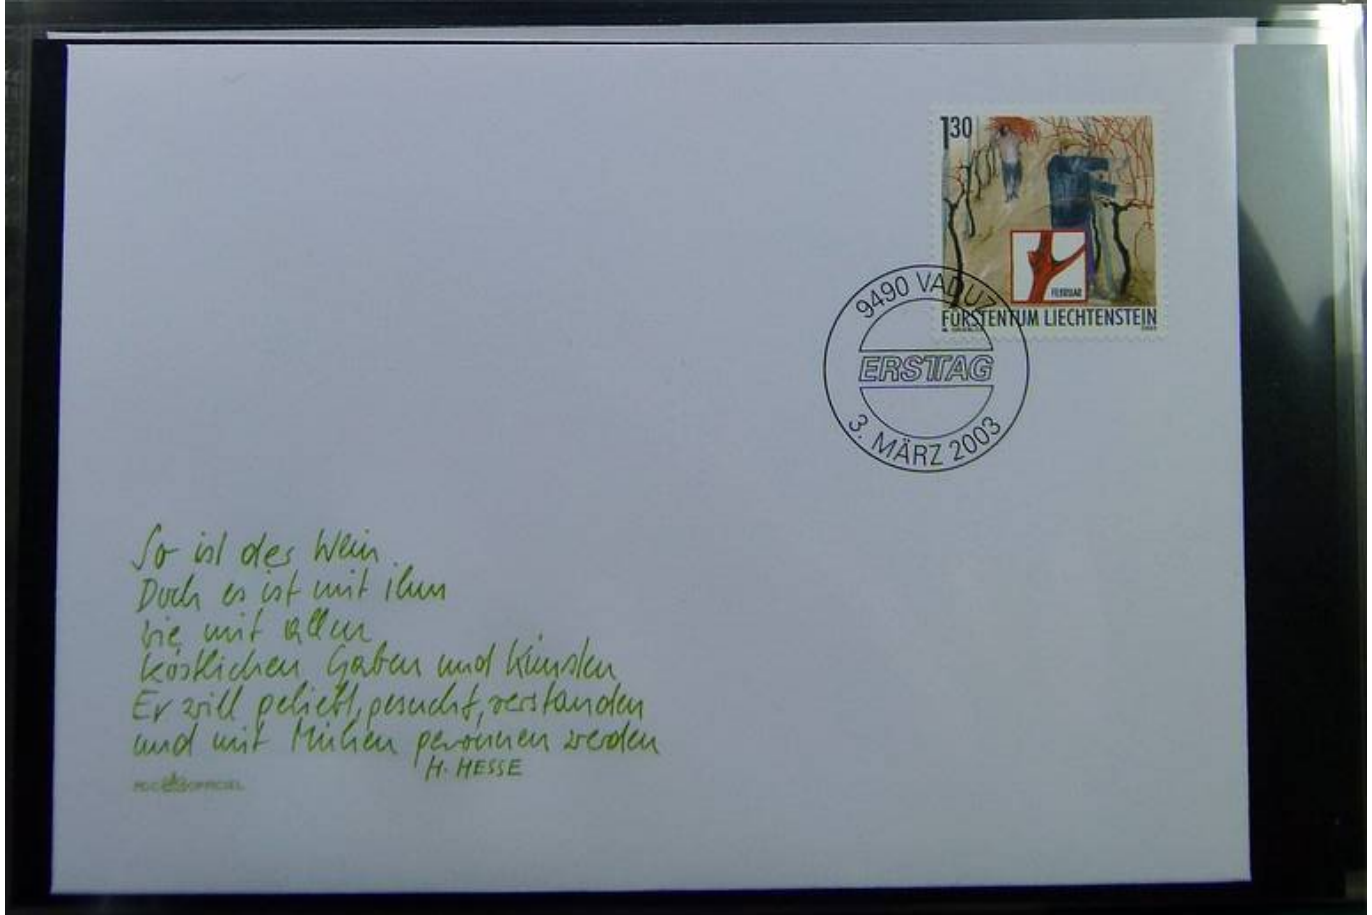 1.30
FEBRUAR
FÜRSTENTUM LIECHTENSTEIN
2003
9490 VADUZ
ERSTTAG
3. MÄRZ 2003
So ist der Wein.
Doch es ist mit ihm
wie mit allen
köstlichen Gaben und Künsten
Er will geliebt, gesucht, verstanden
und mit Mühen gewonnen werden
H. HESSE
FDC OFFICIEL